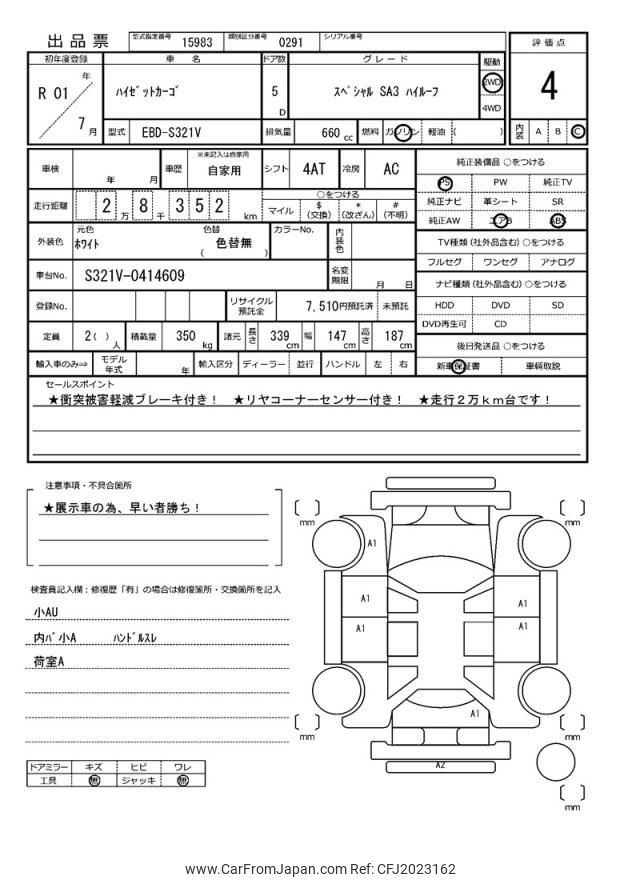 出品票 型式指定番号 15983 類別区分番号 0291 シリアル番号
初年度登録 車 名 ドア数 グレード 駆動 評価点
R 01 年 7 月 ハイゼットカーゴ 5 D スペシャル SA3 ハイルーフ 2WD 4WD 4
型式 EBD-S321V 排気量 660 cc 燃料 ガソリン 軽油 ( ) 内装 A B C
車検 年 月 車歴 ※未記入は自家用 自家用 シフト 4AT 冷房 AC 純正装備品 ○をつける
PS PW 純正TV
走行距離 2 万 8 千 3 5 2 km ○をつける
マイル $(交換) *(改ざん) #(不明)
純正ナビ 革シート SR
純正AW エアB ABS
外装色 元色 ホワイト 色替 ( 色替無 ) カラーNo. 内装色
TV種類 (社外品含む) ○をつける
フルセグ ワンセグ アナログ
車台No. S321V-0414609 名変期限 月 日
ナビ種類 (社外品含む) ○をつける
登録No. リサイクル預託金 7,510円預託済 未預託
HDD DVD SD
DVD再生可 CD
定員 2( ) 人 積載量 350 kg 諸元 長さ 339 cm 幅 147 cm 高さ 187 cm
後日発送品 ○をつける
輸入車のみ⇨ モデル年式 年 輸入区分 ディーラー 並行 ハンドル 左 右 新車保証書 車輌取説
セールスポイント
★衝突被害軽減ブレーキ付き! ★リヤコーナーセンサー付き! ★走行２万ｋｍ台です!
注意事項・不具合箇所
★展示車の為、早い者勝ち!
検査員記入欄：修復歴「有」の場合は修復箇所・交換箇所を記入
小AU
内ﾊﾞ小A ﾊﾝﾄﾞﾙｽﾚ
荷室A
ドアミラー キズ ヒビ ワレ
工具 無 ジャッキ 無
mm
mm
A1
A1
A1
A1
A1
A1
mm
mm
A2
mm
www.CarFromJapan.com Ref: CFJ2023162